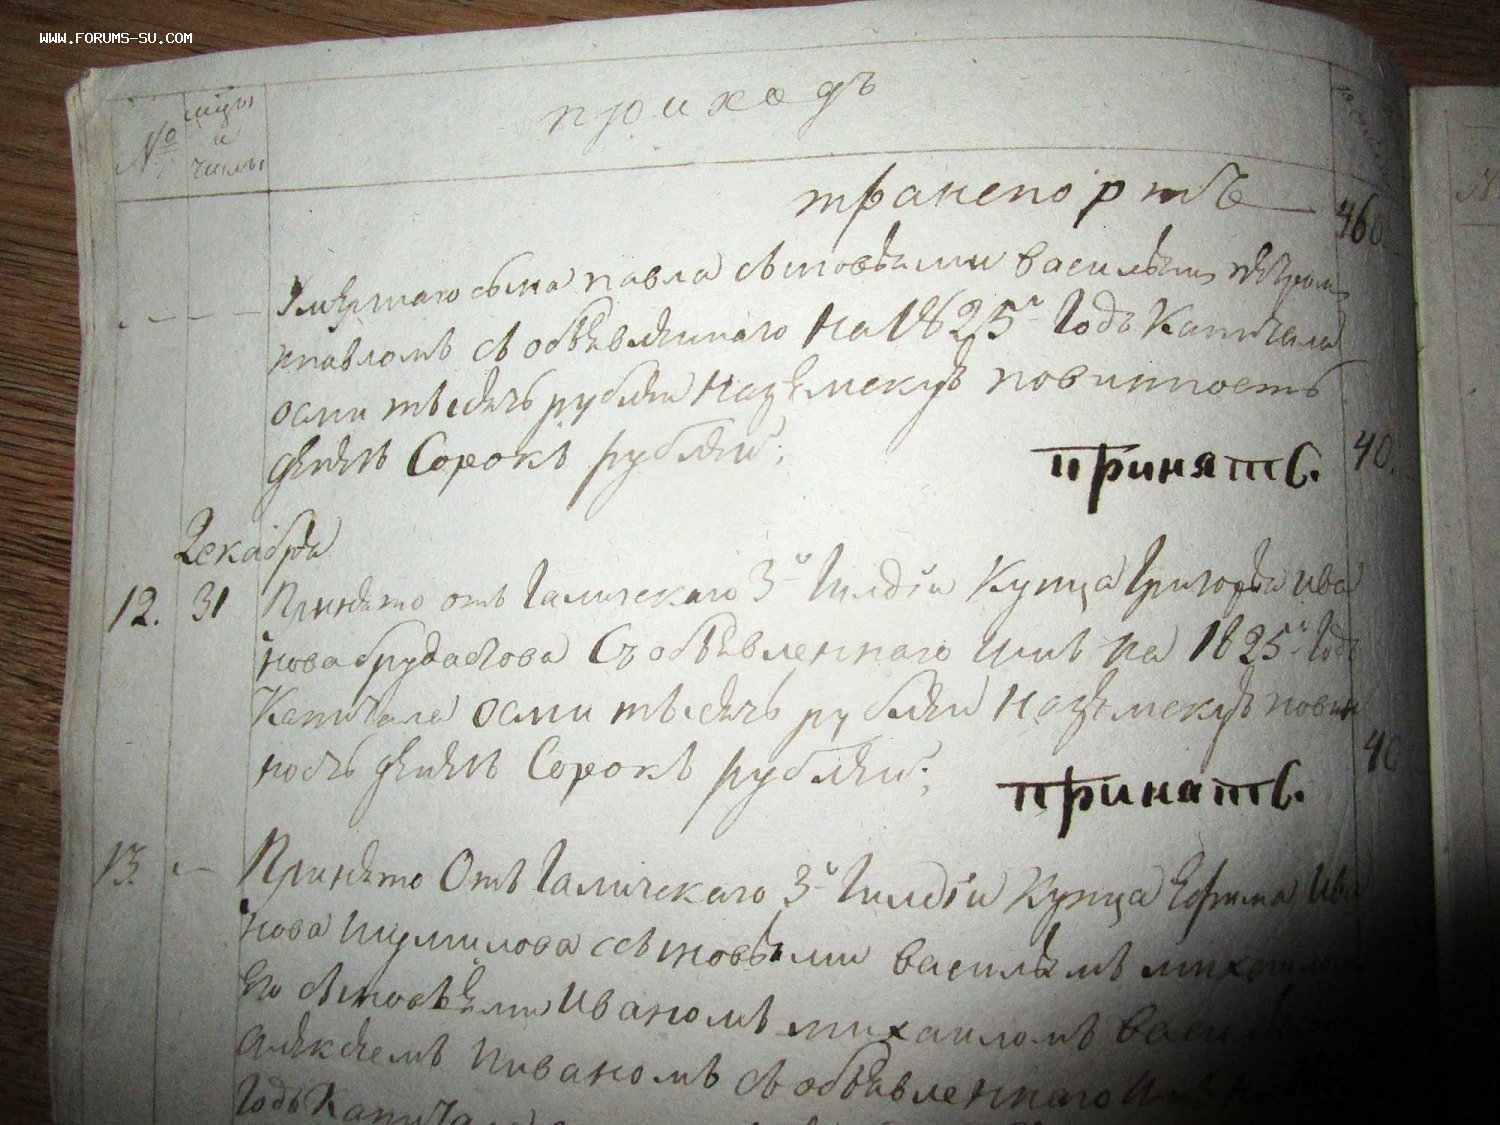 WWW.FORUMS-SU.COM
№
мцы
и
числы
приходъ
транспортъ 460
Умершаго сына павла сыновьями васильемъ петромъ
ипавломъ съ объявленнаго на 1825й годъ Капитала
осми тысячь рублей наземскую повинность
денегъ Сорокъ рублей; принятъ. 40.
Декабря
12. 31 Принято отъ галичскаго 3й гилдіи Купца Григорья Ива
нова Съ объявленнаго имъ на 1825й годъ
Капитала осми тысячь рублей наземскую повин
ность денегъ Сорокъ рублей; принятъ. 40
13. — Принято Отъ галичскаго 3й гилдіи Купца Ефима Ива
нова шумилова ссыновьями васильемъ
его сыновьями Иваномъ михаиломъ
алексеемъ ииваномъ съ объявленнаго имъ
годъ Капитала